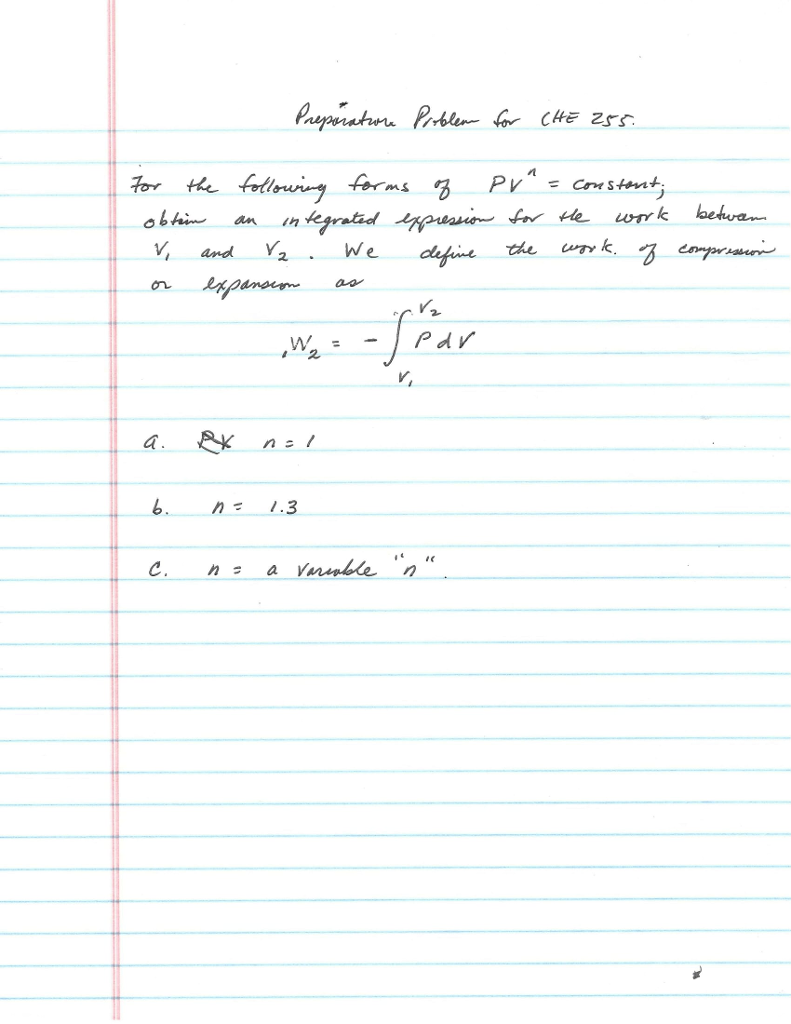 Preparature Problem for CHE 255.
For the following forms of PVⁿ = constant;
obtain an integrated expression for the work between
V₁ and V₂. We define the work of compression
or expansion as
₁W₂ = - ∫_{V₁}^{V₂} P dV
a. n = 1
b. n = 1.3
c. n = a variable "n".